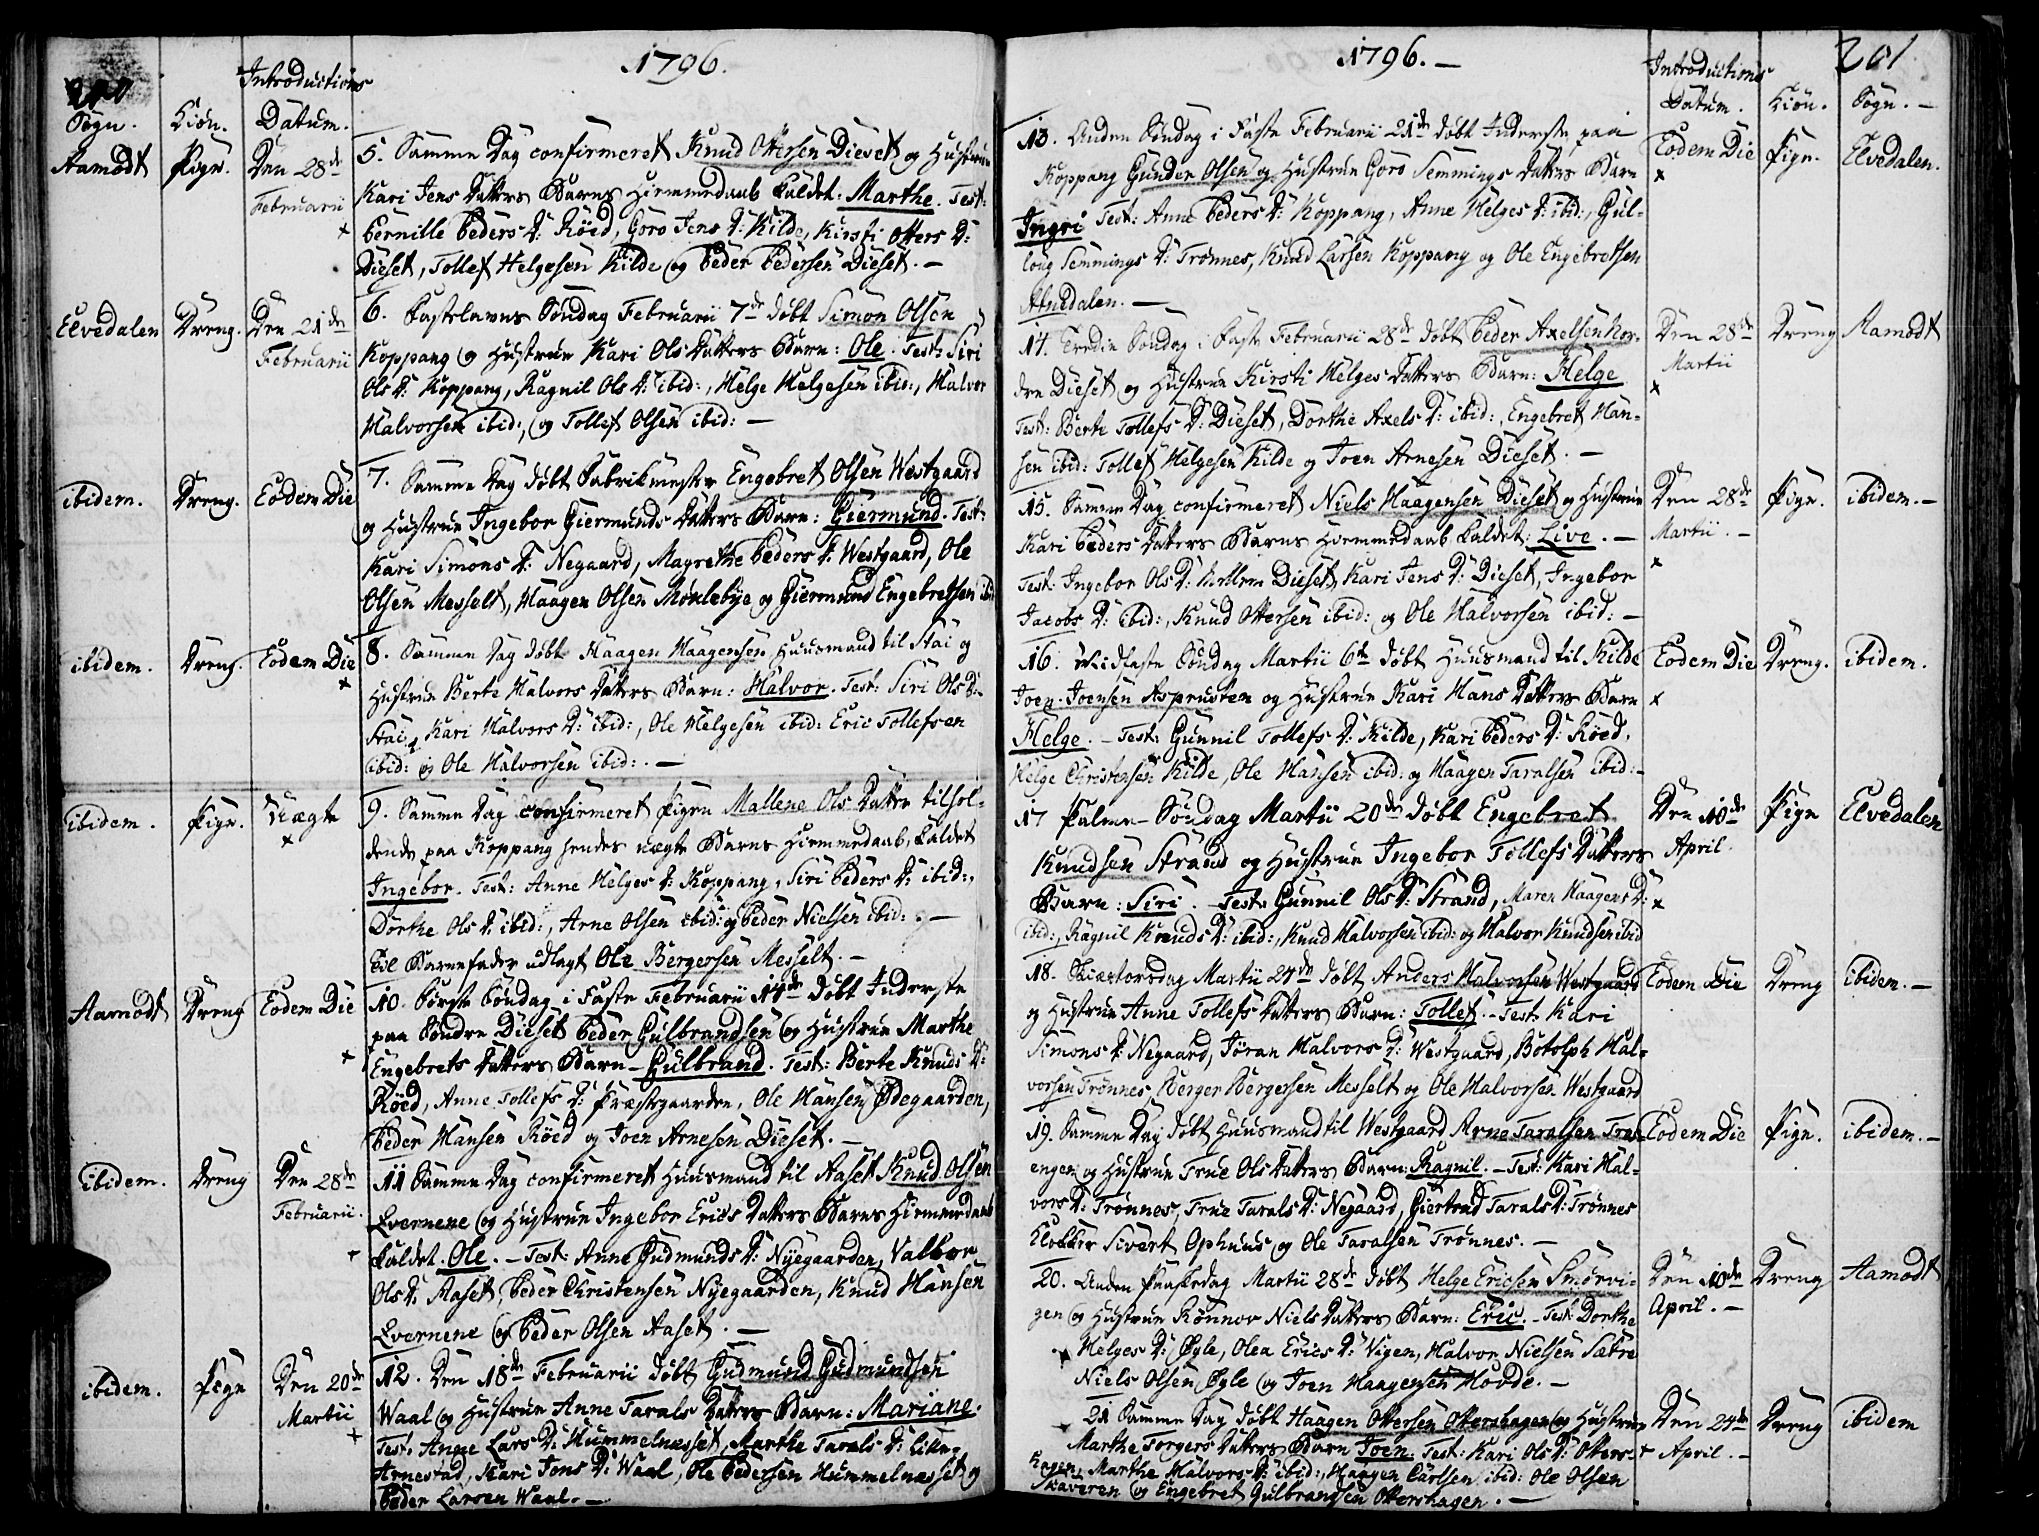 1796.
200
Sogn.
Kiøn.
Introductions
Datum.
Aamodt
Pige.
Den 28de
Februarii
5. Samme Dag confirmeret Knud Ottersen Dieset og Hustrue
Kari Jens Datters Barns Hiemmedaab kaldet: Marthe. Test:
Pernille Peders D: Röed, Goro Jens D: Kilde, Kirsti Otters D:
Dieset, Tollef Helgesen Kilde og Peder Pedersen Dieset. —
Elvedalen
Dreng.
Den 21de
Februarii
6. Fastelavns Söndag Februarii 7de döbt Simon Olsen
Koppang og Hustrue Kari Ols Datters Barn: Ole. Test: Siri
Ols D: Koppang, Ragnil Ols D: ibid:, Helge Helgesen ibid:, Halvor
Halvorsen ibid:, og Tollef Olsen ibid: —
ibidem.
Dreng.
Eodem Die
7. Samme Dag döbt Fabrikmester Engebret Olsen Westgaard
og Hustrue Ingebor Giermunds Datters Barn: Giermund. Test:
Kari Simons D: Negaard, Magrethe Peders D: Westgaard, Ole
Olsen Messelt, Haagen Olsen Moxlebye og Giermund Engebretsen ibid
ibidem.
Dreng.
Eodem Die
8. Samme Dag döbt Haagen Haagensen Huusmand til Stai og
Hustrue Berte Halvors Datters Barn: Halvor. Test: Siri Ols D:
Stai, Kari Halvors D: ibid:, Ole Helgesen ibid: Eric Tollefsen
ibid: og Ole Halvorsen ibid: —
ibidem.
Pige.
Uægte
9. Samme Dag confirmeret Pigen Mallene Ols Datter tilhol-
dende paa Koppang hendes uægte Barns Hiemmedaab, kaldet
Ingebor. Test: Anne Helges D: Koppang, Siri Peders D: ibid:,
Dorthe Ols D: ibid:, Arne Olsen ibid: og Peder Nielsen ibid: —
Til Barnefader udlagt Ole Bergersen Messelt. —
Aamodt
Dreng
Eodem Die
10. Første Söndag i Faste Februarii 14de döbt Inderste
paa Söndre Dieset Peder Gulbrandsen og Hustrue Marthe
Engebrets Datters Barn — Gulbrand. Test: Berte Knuds D:
Röed, Anne Tollefs D: Præstegaarden, Ole Hansen Ödegaarden,
Peder Hansen Röed og Joen Arnesen Dieset. —
ibidem.
Dreng
Den 28de
Februarii.
11 Samme Dag confirmeret Huusmand til Aaset Knud Olsen
Evernene og Hustrue Ingebor Erics Datters Barns Hiemmedaab
kaldet. Ole. — Test: Anne Gudmunds D: Nyegaarden, Valbor
Ols D: Aaset, Peder Christensen Nyegaarden, Knud Hansen
Evernene og Peder Olsen Aaset. —
ibidem.
Pige
Den 20de
Martii
12. Den 18de Februarii döbt Gudmund Gudmundsen
Waal og Hustrue Anne Tarals Datters Barn: Mariane.
Test: Anne Lars D: Hummelnesset, Marthe Tarals D:
Arnestad, Kari Jons D: Waal, Ole Pedersen Hummelnesset og
Peder Larsen Waal. —
1796. —
201
Introductions
Datum.
Kiøn.
Sogn. —
13. Anden Söndag i Faste Februarii 21de döbt Inderste paa
Koppang Gunder Olsen og Hustrue Goro Semmings Datters Barn
Ingri Test: Anne Peders D: Koppang, Anne Helges D: ibid:, Gul-
loug Semmings D: Trønnes, Knud Larsen Koppang og Ole Engebretsen
Atnedalen. —
Eodem Die
Pige.
Elvedalen.
14. Tredie Söndag i Faste Februarii 28de döbt Peder Axelsen Nor-
dre Dieset og Hustrue Kirsti Helges Datters Barn: Helge
Test: Berte Tollefs D: Dieset, Dorthe Axels D: ibid:, Engebret Han-
sen ibid: Tollef Helgesen Kilde og Joen Arnesen Dieset. —
Den 28de
Martii
Dreng
Aamodt
15. Samme Dag confirmeret Niels Haagensen Dieset og Hustrue
Kari Peders Datters Barns Hiemmedaab kaldet: Live. —
Test: Ingebor Ols D: Mellem Dieset, Kari Jens D: Dieset, Ingebor
Jacobs D: ibid:, Knud Ottersen ibid: og Ole Halvorsen ibid: —
Den 28de
Martii. —
Pige.
ibidem. —
16. Midfaste Söndag Martii 6te döbt Huusmand til Kilde
Joen Joensen Asprusten og Hustrue Kari Hans Datters Barn
Helge. — Test: Gunnil Tollefs D: Kilde, Kari Peders D: Röed,
Helge Christensen Kilde, Ole Hansen ibid: og Haagen Taralsen ibid: —
Eodem Die
Dreng.
ibidem.
17 Palme-Söndag Martii 20de döbt Engebret
Knudsen Strand og Hustrue Ingebor Tollefs Datters
Barn: Siri. — Test: Gunnil Ols D: Strand, Maren Haagens D:
ibid:, Ragnil Knuds D: ibid:, Knud Halvorsen ibid: og Halvor Knudsen ibid
Den 10de
April.
Pige
Elvedalen
18. Skiærtorsdag Martii 24de döbt Anders Halvorsen Westgaard
og Hustrue Anne Tollefs Datters Barn: Tollef. — Test: Kari
Simons D: Negaard, Jöran Halvors D: Westgaard, Botolph Hal-
vorsen Trønnes Berger Bergersen Messelt og Ole Halvorsen Westgaard
Eodem Die
Dreng
ibidem. —
19. Samme Dag döbt Huusmand til Westgaard Arne Taralsen
engen og Hustrue True Ols Datters Barn: Ragnil. — Test: Kari Hal-
vors D: Trønnes, True Tarals D: Negaard, Giertrud Tarals D: Trønnes
Klokker Sivert Ophuus og Ole Taralsen Trønnes. —
Eodem Die
Pige.
ibidem. —
20. Anden Paaskedag Martii 28de döbt Helge Ericsen Smörvi-
gen og Hustrue Rönnov Niels Datters Barn: Eric. — Test: Dorthe
Helges D: Ögle, Olea Erics D: Vigen, Halvor Nielsen Sætre
Niels Olsen Ögle og Joen Haagensen Hovde. —
Den 10de
April. —
Dreng
Aamodt
21 Samme Dag döbt Haagen Ottersen Ottershagen og Hustrue
Marthe Torgers Datters Barn Joen. Test: Kari Ols D: Otters-
hagen, Marthe Halvors D: ibid:, Haagen Carlsen ibid: Ole Olsen
Skaveren og Engebret Gulbrandsen Ottershagen. —
Den 24de
April. —
Dreng
ibidem